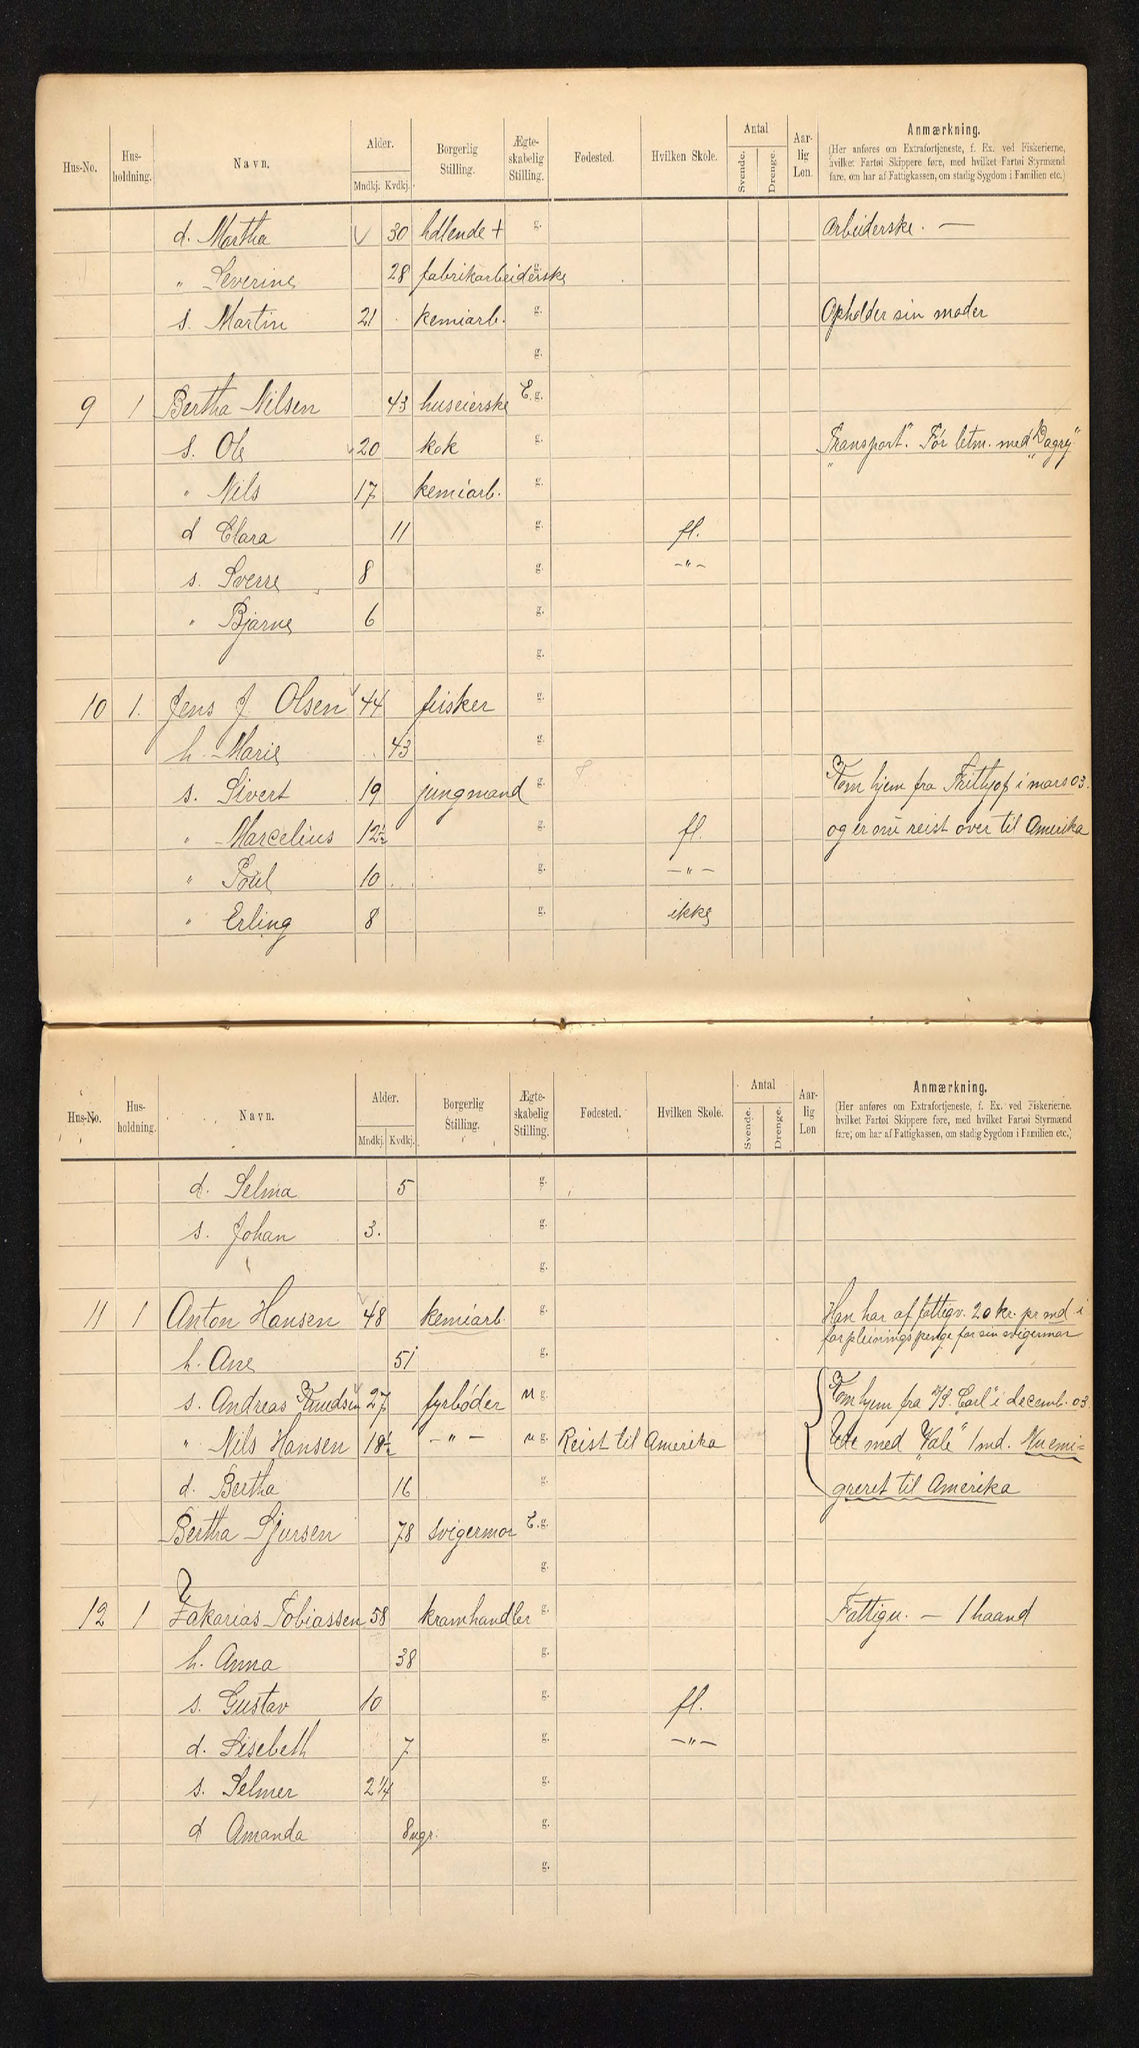 Hus-No. Hus-holdning. Navn. Alder. Mndkj. Kvdkj. Borgerlig Stilling. Ægte-skabelig Stilling. Fødested. Hvilken Skole. Antal Svende. Drenge. Aar-lig Løn. Anmærkning.
(Her anføres om Extrafortjeneste, f. Ex. ved Fiskerierne,
hvilket Fartøi Skippere føre, med hvilket Fartøi Styrmænd
fare, om har af Fattigkassen, om stadig Sygdom i Familien etc.)
d. Martha 30 hdlende + g. Arbeiderske. —
" Severine 28 fabrikarbeiderske g.
s. Martin 21 kemiarb. g. Opholder sin moder
g.
9 1 Bertha Nilsen 43 huseierske E. g.
s. Ole 20 kok g. "Transport". Før letm. med "Dagry"
" Nils 17 kemiarb. g.
d Clara 11 g. fl.
s. Sverre 8 g. -"-
" Bjarne 6 g.
g.
10 1. Jens J. Olsen 44 fisker g.
h. Marie 43 g.
s. Sivert 19 jungmand g. Kom hjem fra Frithjof i mars 03.
" Marcelius 12½ g. fl. og er nu reist over til Amerika
" Poul 10 g. -"-
" Erling 8 g. ikke
Hus-No. Hus-holdning. Navn. Alder. Mndkj. Kvdkj. Borgerlig Stilling. Ægte-skabelig Stilling. Fødested. Hvilken Skole. Antal Svende. Drenge. Aar-lig Løn Anmærkning.
(Her anføres om Extrafortjeneste, f. Ex. ved Fiskerierne,
hvilket Fartøi Skippere føre, med hvilket Fartøi Styrmænd
fare, om har af Fattigkassen, om stadig Sygdom i Familien etc.)
d. Selma 5 g.
s. Johan 3. g.
g.
11 1 Anton Hansen 48 kemiarb. g. Han har af fattigv. 20 kr. pr md i
forpleiningspenge for sin svigermor
h. Ane 51 g.
s. Andreas Knudsen 27 fyrbøder u g. Kom hjem fra D/S. "Carl" i decemb. 03.
" Nils Hansen 18½ -"- u g. Reist til Amerika Ude med "Vale" 1 md. Nu emi-
d. Bertha 16 g. greret til Amerika
Bertha Sjursen 78 svigermor E. g.
g.
12 1 Zakarias Tobiassen 58 kramhandler g. Fattigv. — 1 haand
h. Anna 38 g.
s. Gustav 10 g. fl.
d. Lisebeth 7 g. -"-
s. Selmer 2 1/4 g.
d Amanda g.
g.